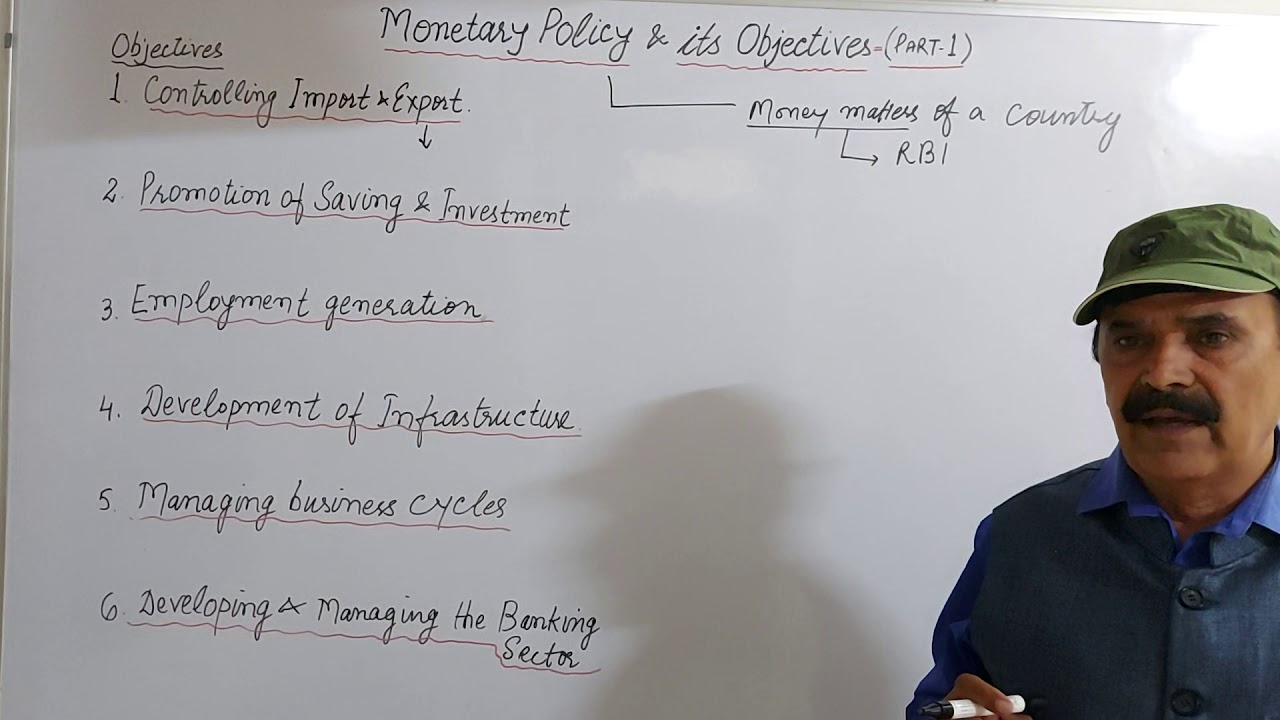 Monetary Policy & its Objectives=(PART-1)
Money matters of a Country
RBI
Objectives
1. Controlling Import & Export.
2. Promotion of Saving & Investment
3. Employment generation
4. Development of Infrastructure
5. Managing business cycles
6. Developing & Managing the Banking
Sector